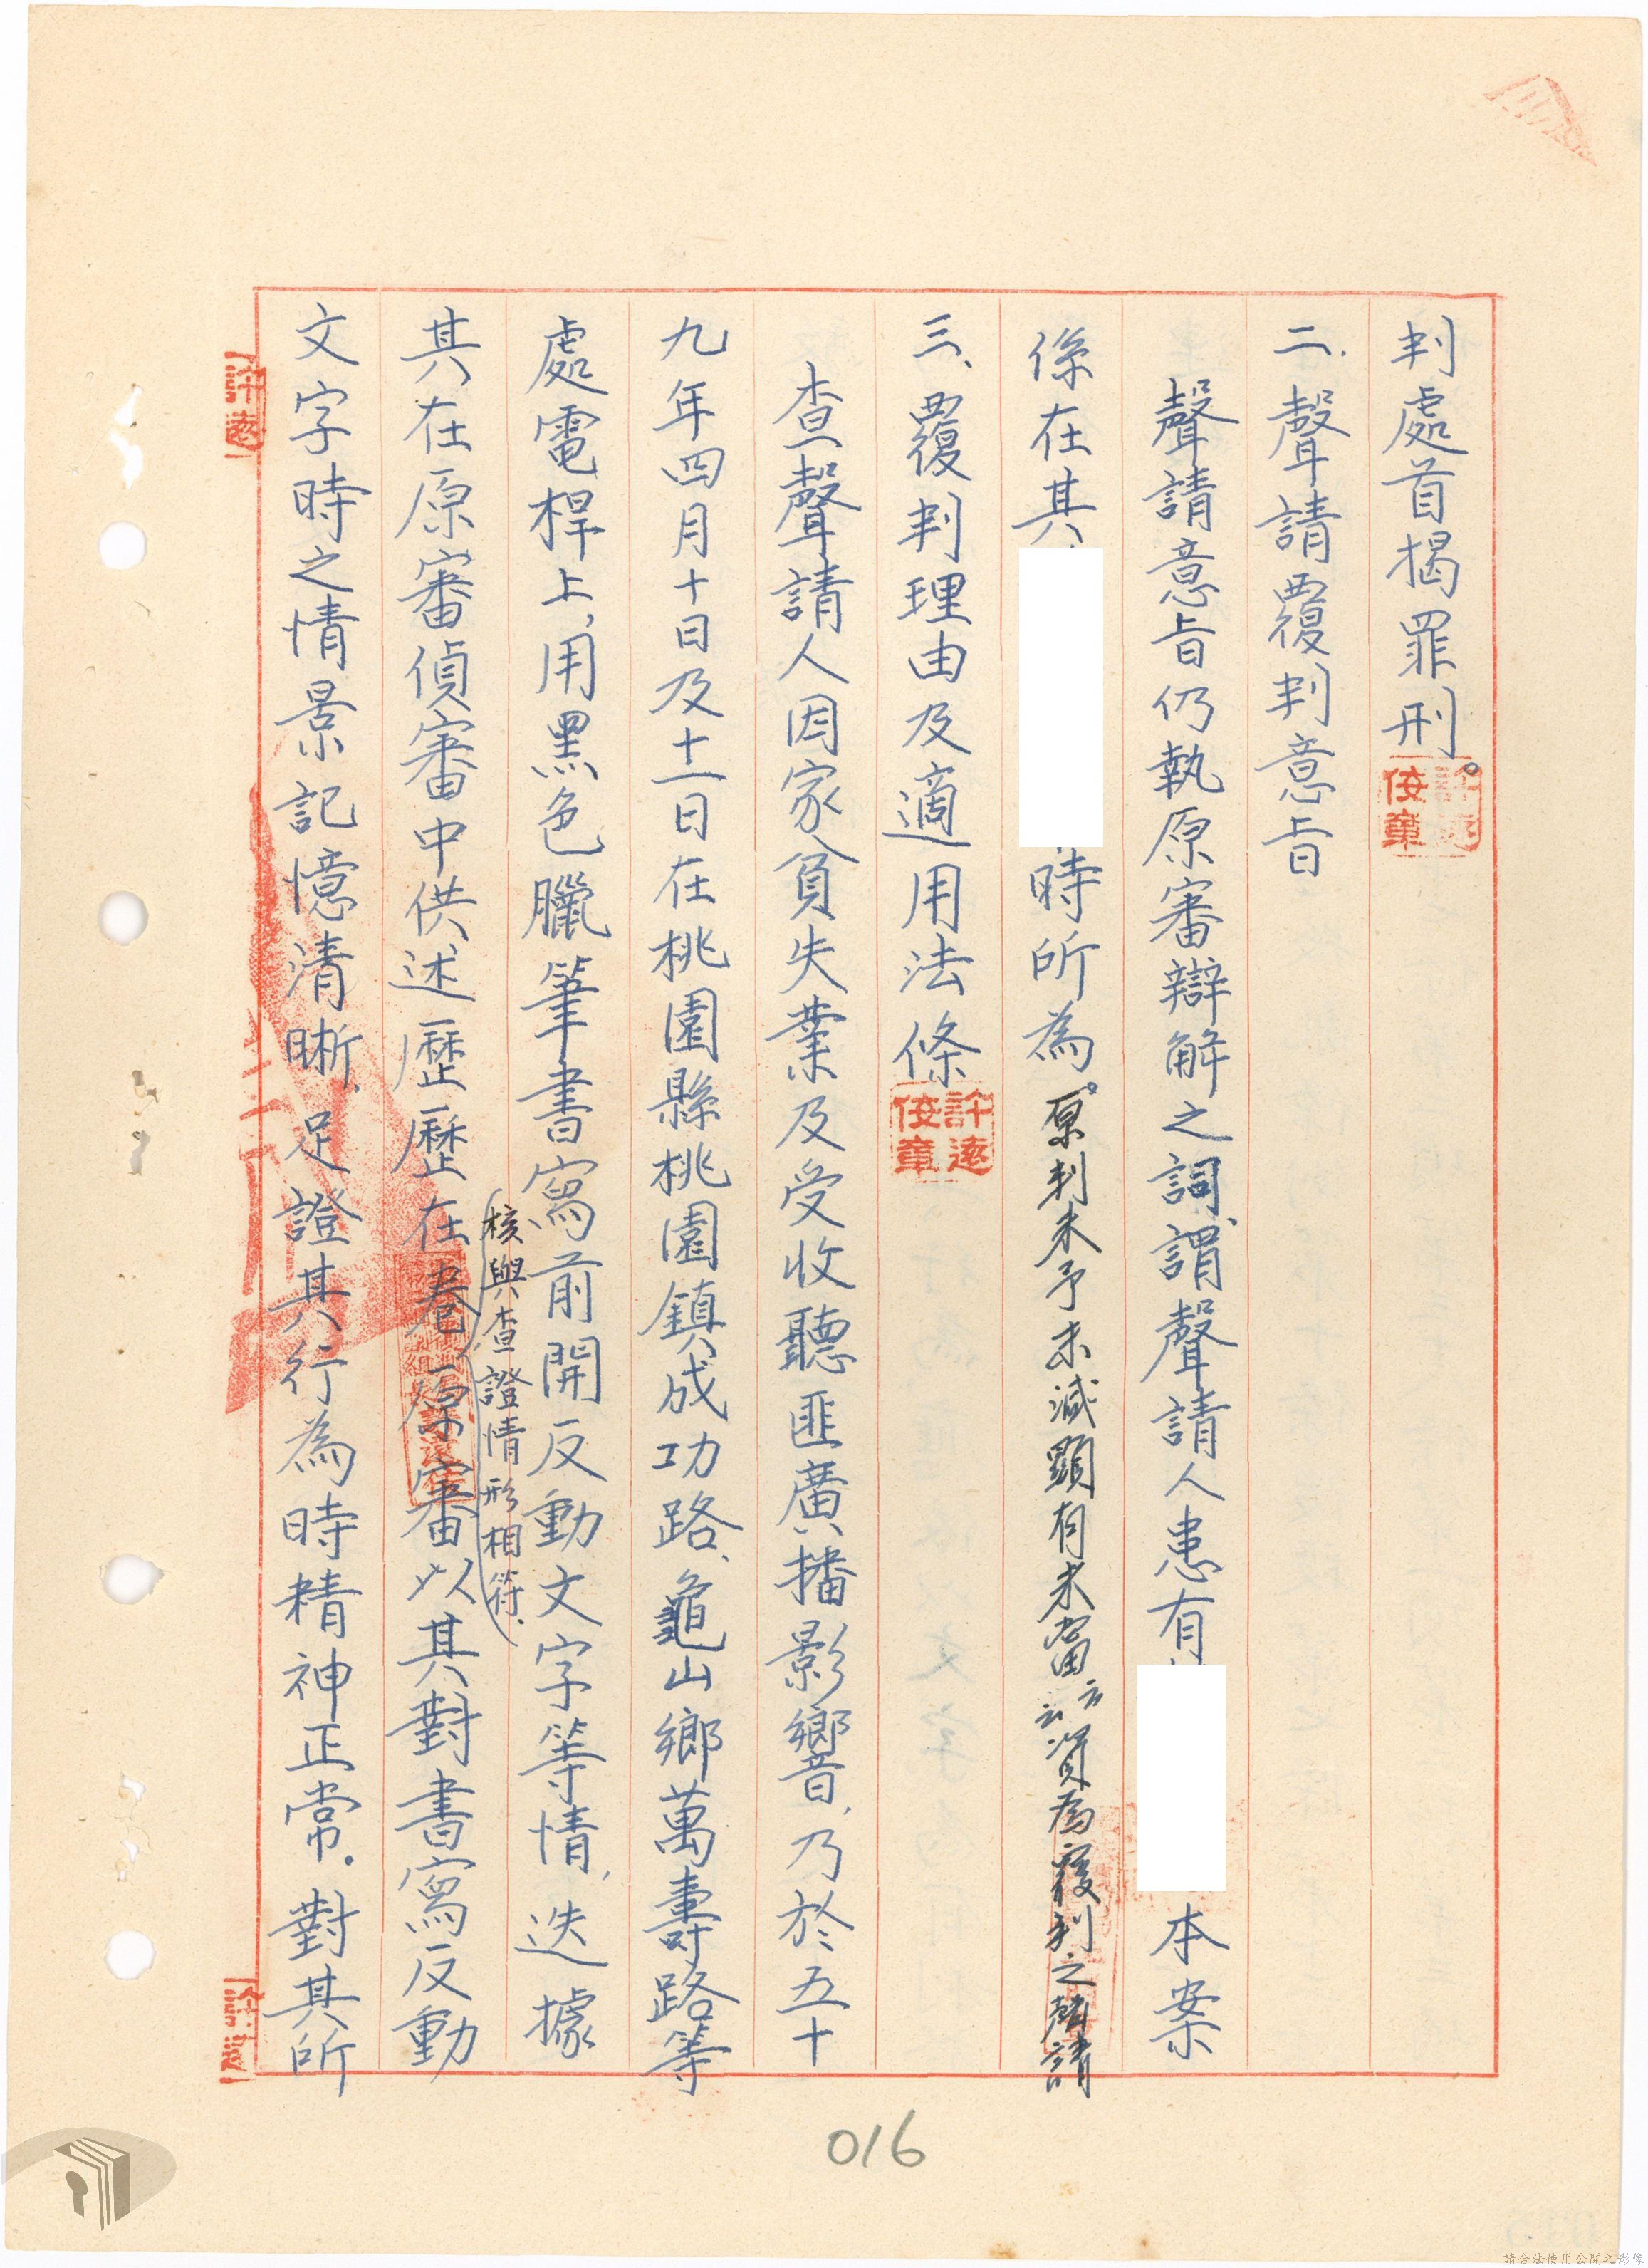 判處首揭罪刑。
許遠佞章
二、聲請覆判意旨
聲請意旨仍執原審辯解之詞、謂聲請人患有
本案
係在其
時所為。原判未予未減顯有未當云云資為覆判之聲請
三、覆判理由及適用法條
查聲請人因家貧失業及受收聽匪廣播影響,乃於五十
九年四月十日及十一日在桃園縣桃園鎮成功路、龜山鄉萬壽路等
處電桿上,用黑色臘筆書寫前開反動文字等情,迭據
其在原審偵審中供述歷歷在卷,原審以其對書寫反動
核與查證情形相符.
文字時之情景記憶清晰,足證其行為時精神正常。對其所
016
請合法使用公開之影像